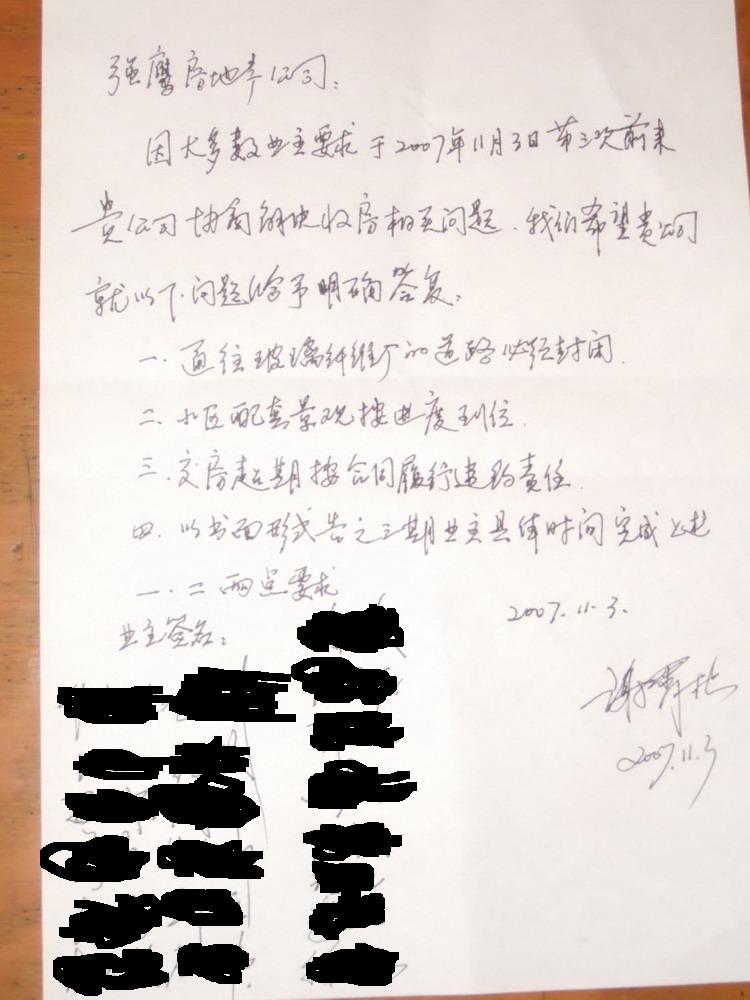 强鹰房地产公司：
因大多数业主要求于2007年11月3日第三次前来
贵公司协商解决收房相关问题．我们希望贵公司
就以下问题给予明确答复：
一．通往玻璃纤维厂的道路必须封闭．
二．小区配套景观按进度到位．
三．交房超期按合同履行违约责任．
四．以书面形式告之三期业主具体时间完成上述
一．二两点要求
2007.11.3.
业主签名：
2007.11.3